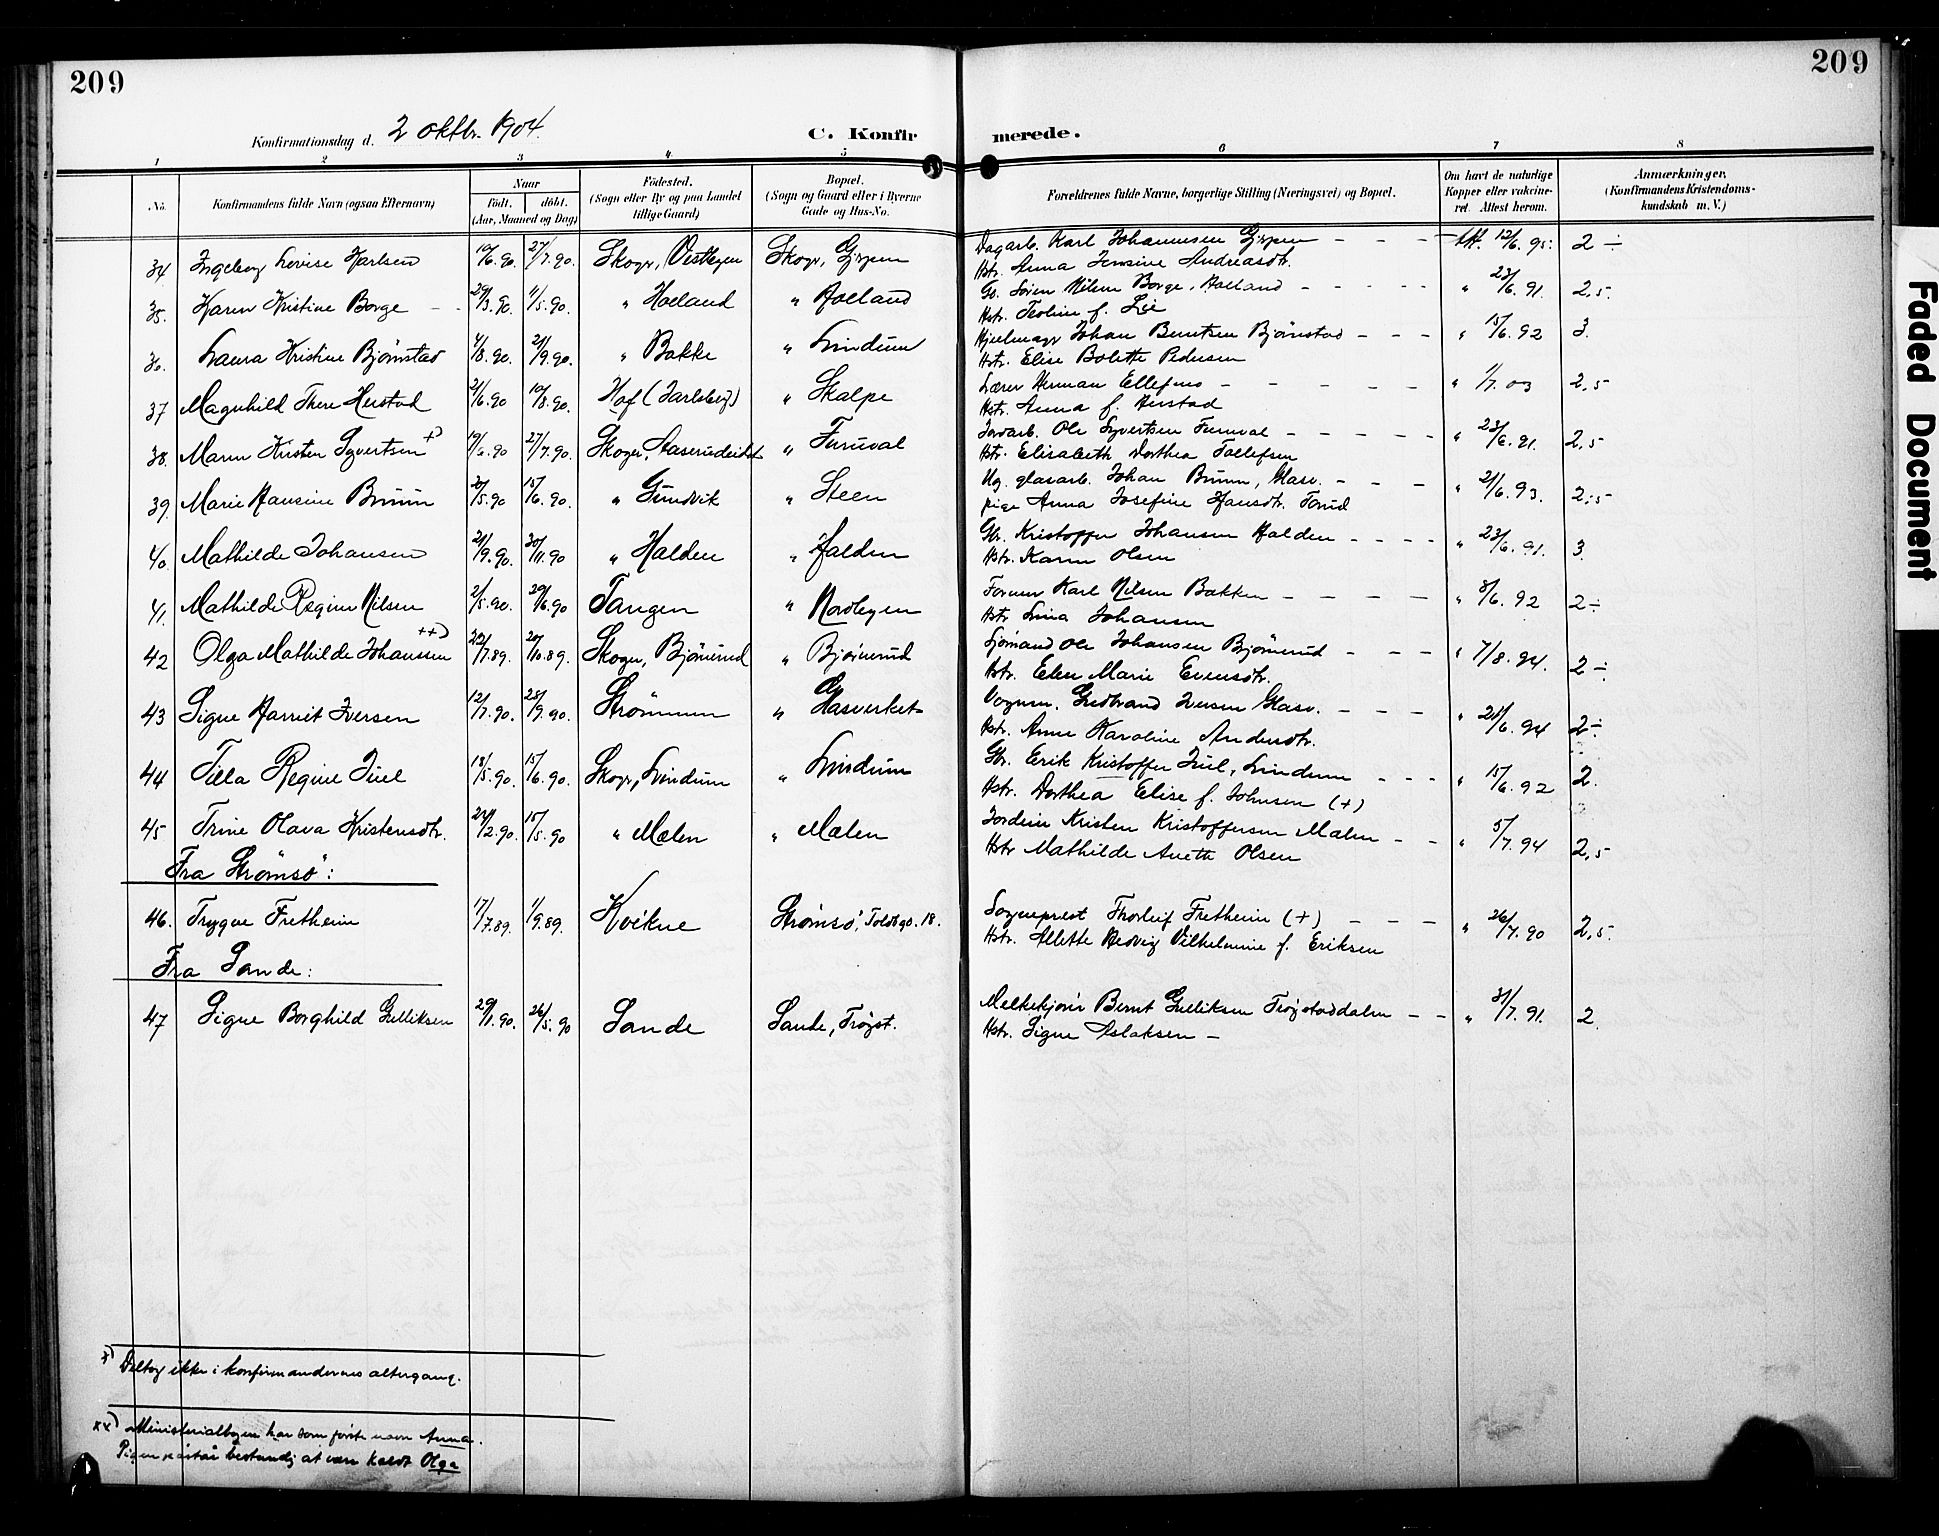 209
209
Konfirmationsdag d. 2 oktbr. 1904.
C. Konfirmerede.
1 2 3 4 5 6 7 8
No.
Konfirmandens fulde Navn (ogsaa Efternavn)
Naar
født. døbt.
(Aar, Maaned og Dag)
Fødested.
(Sogn eller By og paa Landet tillige Gaard)
Bopæl.
(Sogn og Gaard eller i Byerne Gade og Hus-No.
Forældrenes fulde Navne, borgerlige Stilling (Næringsvei) og Bopæl.
Om havt de naturlige Kopper eller vaccineret. Attest herom.
Anmærkninger.
(Konfirmandens Kristendomskundskab m. V.)
34 Ingeborg Lovise Karlsen 10/6.90. 27/7.90. Skoger, Vestbyen Skoger, Gjerpen Dagarb. Karl Johannesen Gjerpen - - - Att. 12/6.95: 2 ÷
Hstr. Anna Jensine Andreasdtr.
35. Karen Kristine Borge - - 29/3.90. 11/5.90. " Hoeland " Hoeland Gb. Søren Nilsen Borge, Hoeland - - - - - " 23/6.91. 2,5.
Hstr. Teoline f. Lie
36. Laura Kristine Bjørnstad 4/8.90. 21/9.90. " Bakke " Lindum Hjulmager Johan Berntsen Bjørnstad - - - " 15/6.92 3.
Hstr. Elise Bolette Pedersen
37 Magnhild There Herstad 21/6.90 10/8.90. Hof (Jarlsberg) " Skalpe Lærer Herman Ellefsens - - - - - " 1/7.03 2,5
Hstr. Anna f. Herstad
38. Maren Kirsten Syvertsen +) 19/6.90 27/7.90. Skoger, Aaserudeidet " Furuval Jordarb. Ole Syvertsen Furuval - - - - - " 23/6.91. 2,5
Hstr. Elisabeth Dorthea Tollefsen
39. Marie Hansine Bruun 20/5.90 15/6.90. " Gundvik " Steen Ug. glasarb. Johan Bruun, Glasv. - - - " 21/6.93. 2,5
pige Anna Josefine Hansdtr. Torud
40. Mathilde Johansen 21/9.90. 30/11.90 " Halden " Halden Gbr. Kristoffer Johansen Halden - - - - " 23/6.91. 3.
Hstr. Karen Olsen
41. Mathilde Regine Nilsen 2/5.90. 29/6.90 Tangen " Nordbyen Formen Karl Nilsen Bakken - - - - - " 8/6.92 2÷
Hstr Lina Johansen
42 Olga Mathilde Johansen ++) 22/7.89. 20/10.89. Skoger, Bjørnerud " Bjørnerud Sjømand Ole Johansen Bjørnerud - - - " 7/8.94. 2÷
Hstr. Elen Marie Evensdtr.
43 Signe Harriet Iversen 12/7.90. 28/9.90. Strømmen " Glasverket Vognm. Gudbrand Iversen Glasv. - - - " 21/6.94 2÷
Hstr. Anne Karoline Andersdtr.
44 Tilla Regine Juel 18/5.90. 15/6.90. Skoger, Lindum " Lindum Gbr. Erik Kristoffer Juel, Lindum - - - " 15/6.92 2.
Hstr. Dorthea Elise f. Johnsen (+)
45 Trine Olava Kristensdtr. 24/2.90. 15/5.90 " Mælen " Mælen Jordeier Kristen Kristoffersen Mælen - - " 5/7.94 2,5
Hstr Mathilde Anette Olsen
Fra Strømsø:
46. Trygve Fretheim 17/7.89. 1/9.89. Kvikne Strømsø, Toldbgd. 18. Sogneprest Thorleif Fretheim (+) - - - " 26/7.90 2,5.
Hstr. Allette Hedvig Vilhelmine f. Eriksen
Fra Sande:
47 Signe Borghild Gulliksen 29/1.90. 26/5.90 Sande Sande, Trøgst. Melkekjører Bernt Gulliksen Trøgstaddalen - - " 31/7.91. 2.
Hstr. Signe Aslaksen -
+) Deltog ikke i konfirmandernes altergang.
++) Ministerialbogen har som første navn Anna.
Pigen påstår bestandig at være kaldt Olga
Faded Document